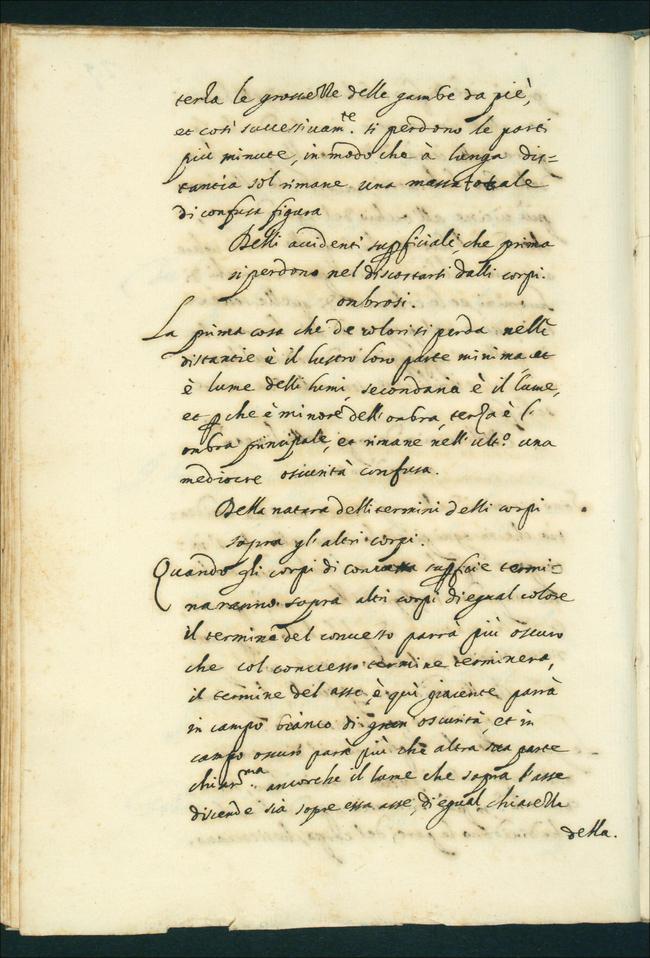 terza le grossezze delle gambe da piè,
et così successivam.te si perdono le parti
più minute, in modo che à lunga dis=
tantia sol rimane una massa totale
di confusa figura
Delli accidenti supficiali, che prima
si perdono nel discostarsi dalli corpi
ombrosi.
La prima cosa che de colori si perda nelle
distantie è il lustro loro parte minima, et
è lume delli lumi, secondaria è il lume,
et pche è minore dell'ombra, terza è l'
ombra principale, et rimane nell'ult.o una
mediocre oscurità confusa.
Della natura delli termini delli corpi
sopra gl'altri corpi.
Quando gli corpi di convessa supficie termi=
naranno sopra altri corpi di egual colore
il termine del convesso parrà più oscuro
che col convesso termine terminerà,
il termine del asse, è qui giacente parrà
in campo bianco di gran oscurità, et in
campo oscuro parà più che altra sua parte
chiariss.ma ancorche il lume che sopra l'asse
discende sia sopre essa asse, di egual chiarezza
della.